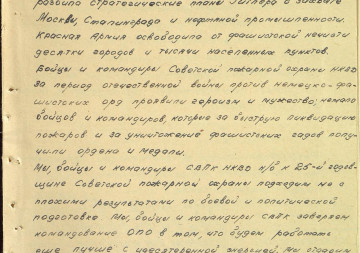 разбило стратегические планы Гитлера о захвате
Москвы, Сталинграда и нефтяной промышленности.
Красная Армия освободила от фашистской нечисти
десятки городов и тысячи населенных пунктов.
Бойцы и командиры Советской пожарной охраны НКВД
за период отечественной войны против немецко-фа-
шистских орд проявили героизм и мужество; немало
бойцов и командиров, которые за быструю ликвидацию
пожаров и за уничтожение фашистских гадов полу-
чили ордена и медали.
Мы, бойцы и командиры СВПК НКВД п/б к 25-й годов-
щине Советской пожарной охраны подходим не с
плохими результатами по боевой и политической
подготовке. Мы, бойцы и командиры СВПК заверяем
командование ОПО в том, что будем работать
еще лучше с удесятеренной энергией. Мы отдадим